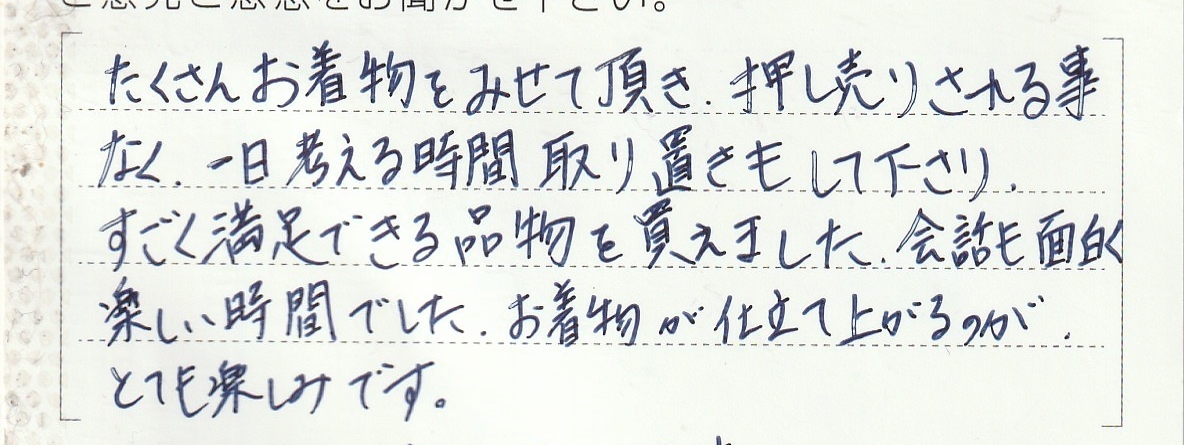 ご意見ご感想をお聞かせ下さい。
たくさんお着物をみせて頂き、押し売りされる事
なく、一日考える時間取り置きもして下さり、
すごく満足できる品物を買えました。会話も面白く
楽しい時間でした。お着物が仕立て上がるのが、
とても楽しみです。